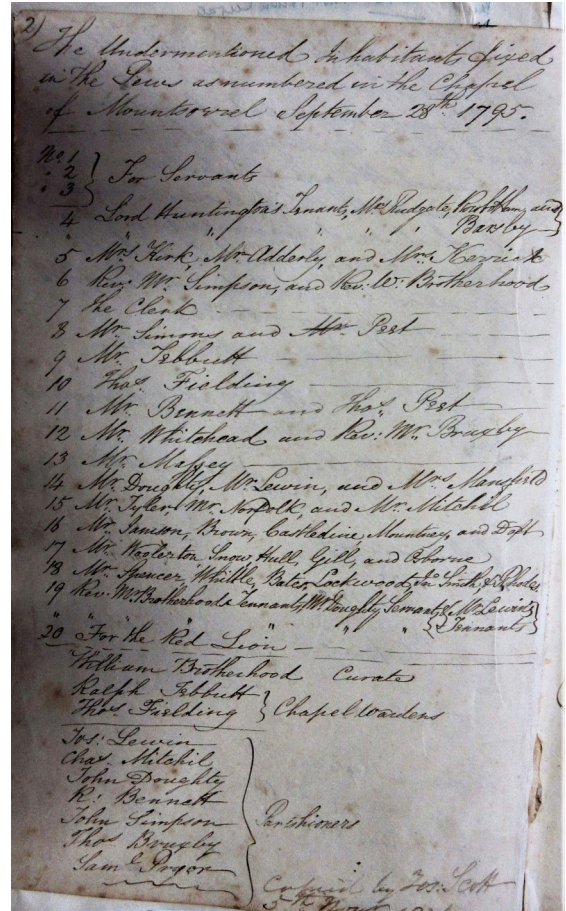 2)
The Undermentioned Inhabitants fixed
in the Pews as numbered in the Chapel
of Mountsorrel September 28th 1795.
No. 1
" 2
" 3 } For Servants
4 Lord Huntington's Tenant, Mrs Rudgate, and
" " " " " Barsby
5 Mrs Kirk, Mr. Adderly, and Mr. Herrick
6 Rev: Mr. Simpson, and Rev: W. Brotherhood
7 The Clerk
8 Mr Simons and Pest
9 Mr. Tebbutt
10 Thos. Fielding
11 Mr. Bennett and Thos. Pest
12 Mr. Whitehead and Rev: Mr. Bruxby
13 Mr. Massey
14 Mr. Doughty, Mr. Lewin, and Mrs Mansfield
15 Mr. Tyler Mr. Norfolk, and Mr. Mitchil
16 Mr Jamson, Brown, Castledine, Mountney, and Dept
17 Mr. Woolerton Snow Hull, Gill, and Osborne
18 Mr. Spencer, Whittle, Bates, Lockwood, Jn Smith, & Rhodes
19 Rev: Mr. Brotherhoods Tennants, Mr. Doughty Servants & Mr. Lewins
" " " " Tennants
20 For the Red Lion
William Brotherhood Curate
Ralph Tebbutt
Thos. Fielding } Chapel Wardens
Jos: Lewin
Chas. Mitchil
John Doughty
R. Bennett
John Simpson
Thos Bruxby
Saml Pryor
Parishioners
Copied by Jos: Scott
5th